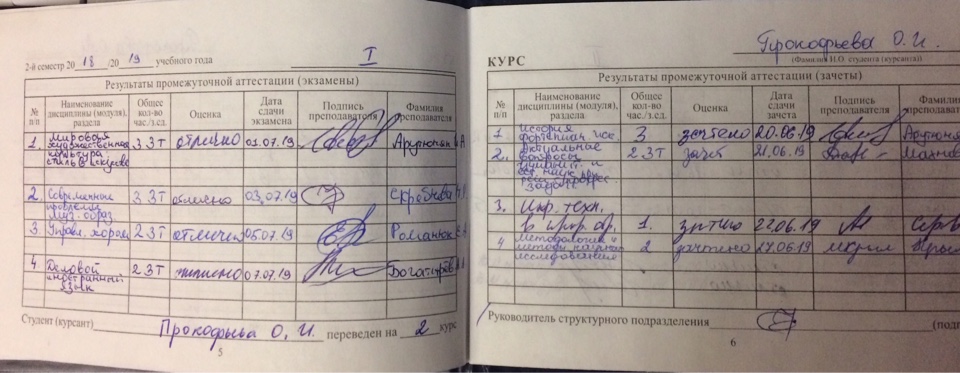 2-й семестр 2018/2019 учебного года I
Результаты промежуточной аттестации (экзамены)
№ п/п Наименование дисциплины (модуля), раздела Общее кол-во час./з.ед. Оценка Дата сдачи экзамена Подпись преподавателя Фамилия преподавателя
1. Мировая художественная культура: 3 ЗТ отлично 01.07.19 Арутюнян
2. Современные проблемы муз. образ. 3 ЗТ отлично 03.07.19
3 Управл. хором 2 ЗТ отлично 05.07.19 Романюк
4. Деловой иностранный язык 2 ЗТ отлично 07.07.19
Студент (курсант) Прокофьева О. И. переведен на 2 курс
5
КУРС Прокофьева О. И.
(Фамилия И.О. студента (курсанта))
Результаты промежуточной аттестации (зачеты)
№ п/п Наименование дисциплины (модуля), раздела Общее кол-во час./з.ед. Оценка Дата сдачи зачета Подпись преподавателя
1 История фортепиан. иск. 3 зачтено 20.06.19
2. Актуальные вопросы 2 ЗТ зачёт 21.06.19
3. Инф. техн. 1. 22.06.19
4 Методология и методы научного исследования 2 зачтено
Руководитель структурного подразделения
6